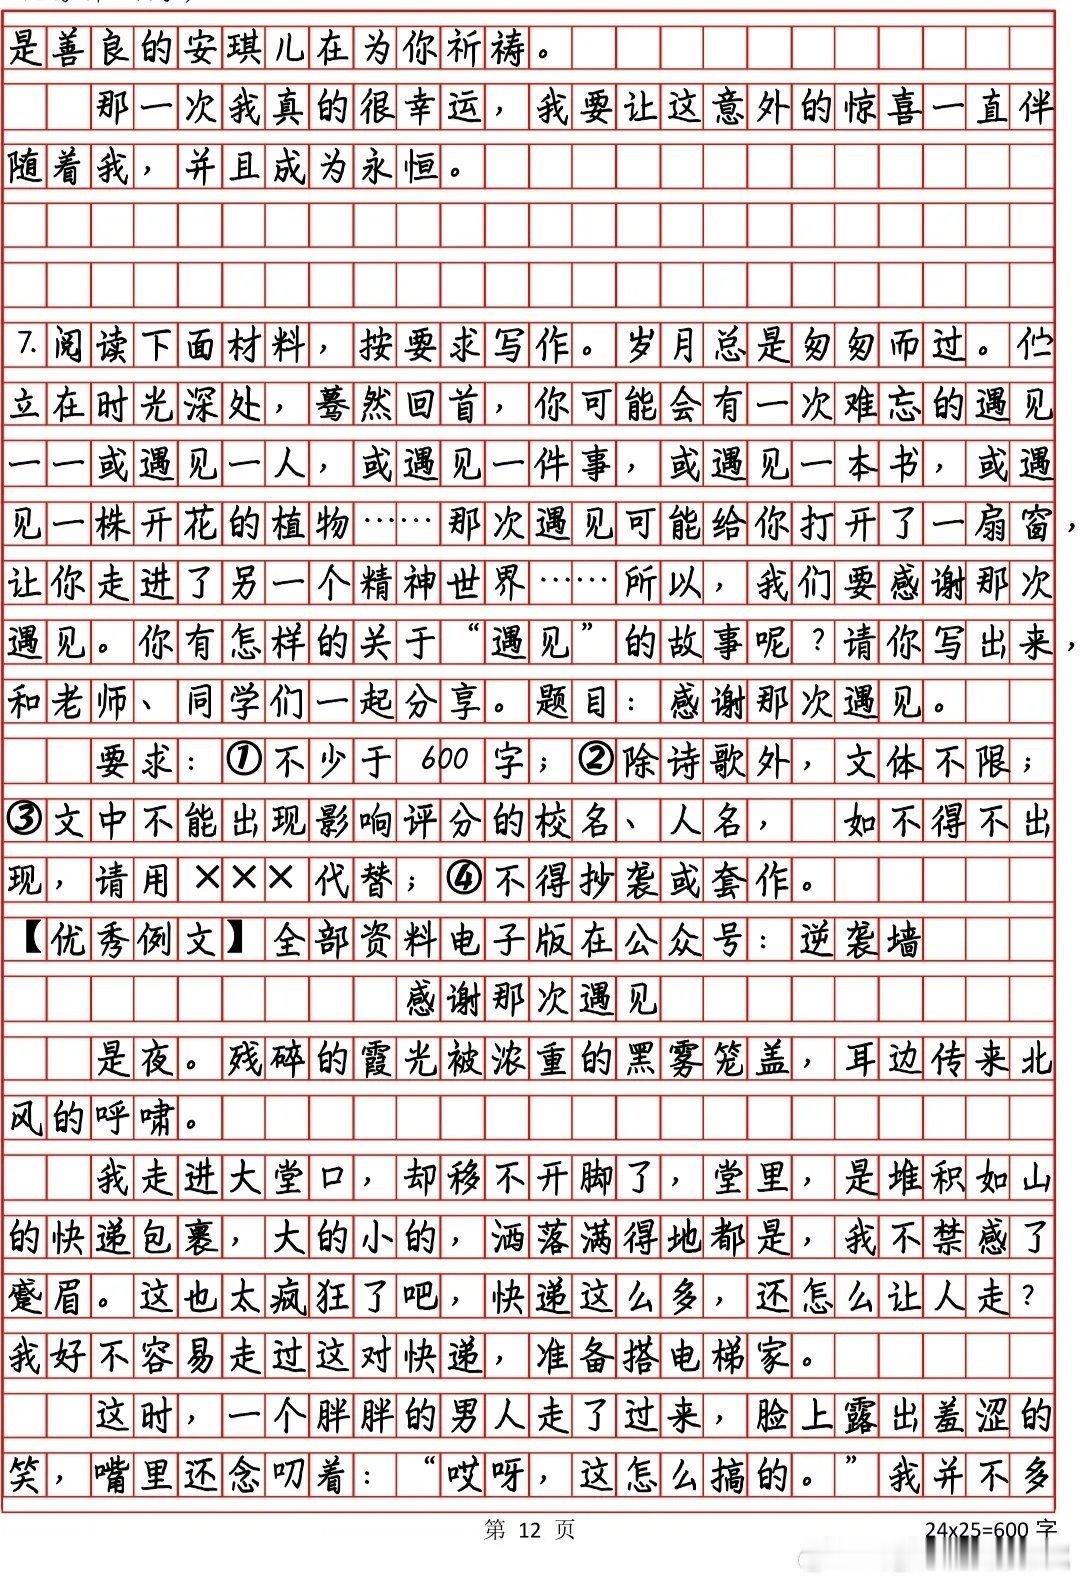 是善良的安琪儿在为你祈祷。
那一次我真的很幸运，我要让这意外的惊喜一直伴
随着我，并且成为永恒。
7.阅读下面材料，按要求写作。岁月总是匆匆而过。伫
立在时光深处，蓦然回首，你可能会有一次难忘的遇见
一一或遇见一人，或遇见一件事，或遇见一本书，或遇
见一株开花的植物……那次遇见可能给你打开了一扇窗，
让你走进了另一个精神世界……所以，我们要感谢那次
遇见。你有怎样的关于“遇见”的故事呢？请你写出来，
和老师、同学们一起分享。题目：感谢那次遇见。
要求：①不少于 600 字；②除诗歌外，文体不限；
③文中不能出现影响评分的校名、人名， 如不得不出
现，请用×××代替；④不得抄袭或套作。
【优秀例文】全部资料电子版在公众号：逆袭墙
感谢那次遇见
是夜。残碎的霞光被浓重的黑雾笼盖，耳边传来北
风的呼啸。
我走进大堂口，却移不开脚了，堂里，是堆积如山
的快递包裹，大的小的，洒落满得地都是，我不禁感了
蹙眉。这也太疯狂了吧，快递这么多，还怎么让人走？
我好不容易走过这对快递，准备搭电梯家。
这时，一个胖胖的男人走了过来，脸上露出羞涩的
笑，嘴里还念叨着：“哎呀，这怎么搞的。”我并不多
第 12 页
24x25=600 字